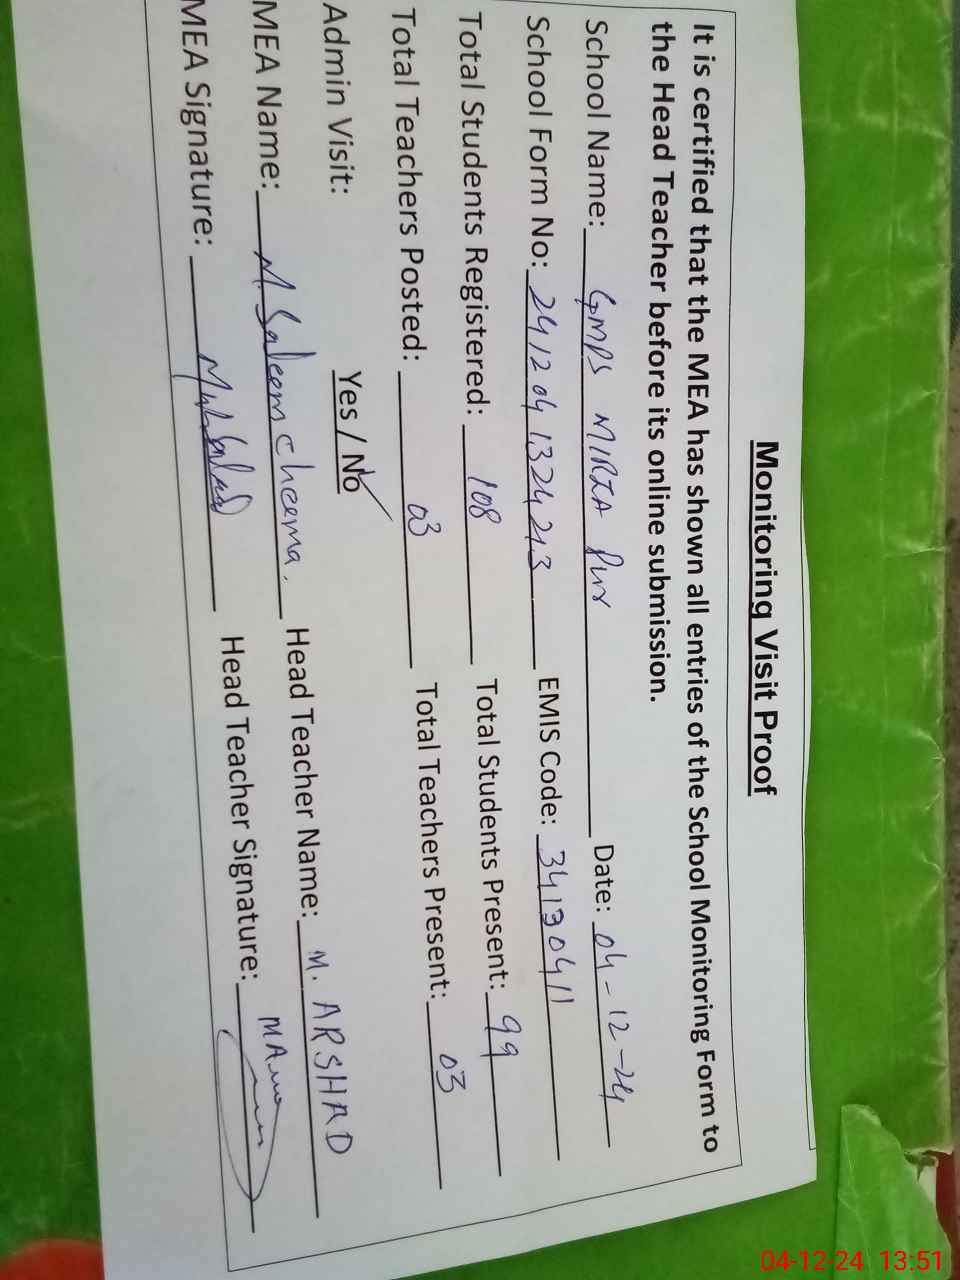 Monitoring Visit Proof
It is certified that the MEA has shown all entries of the School Monitoring Form to
the Head Teacher before its online submission.
School Name: GMPS MIRZA Pur Date: 04-12-24
School Form No: 241204 1324213 EMIS Code: 34130411
Total Students Registered: 108 Total Students Present: 99
Total Teachers Posted: 03 Total Teachers Present: 03
Admin Visit: Yes / No
MEA Name: M. Saleem cheema. Head Teacher Name: M. ARSHAD
MEA Signature: Head Teacher Signature:
04-12-24 13:51